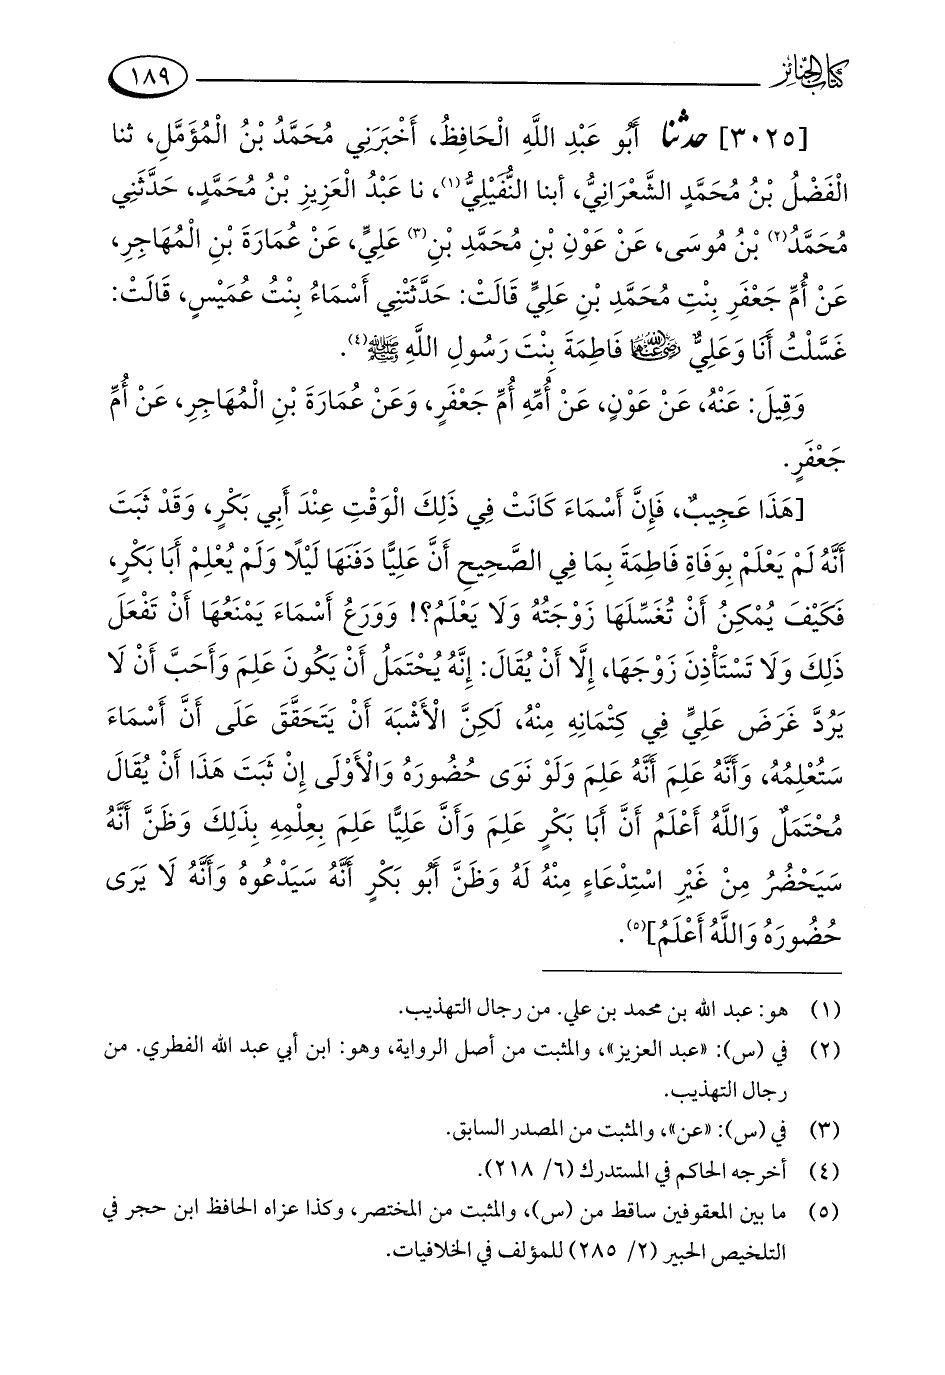 كتاب الجنائز
١٨٩
[٣٠٢٥] حدثنا أَبُو عَبْدِ اللَّهِ الْحَافِظُ، أَخْبَرَنِي مُحَمَّدُ بْنُ الْمُؤَمَّلِ، ثنا
الْفَضْلُ بْنُ مُحَمَّدٍ الشَّعْرَانِيُّ، أبنا النُّفَيْلِيُّ(١)، نا عَبْدُ الْعَزِيزِ بْنُ مُحَمَّدٍ، حَدَّثَنِي
مُحَمَّدُ(٢) بْنُ مُوسَى، عَنْ عَوْنِ بْنِ مُحَمَّدِ بْنِ(٣) عَلِيٍّ، عَنْ عُمَارَةَ بْنِ الْمُهَاجِرِ،
عَنْ أُمِّ جَعْفَرٍ بِنْتِ مُحَمَّدِ بْنِ عَلِيٍّ قَالَتْ: حَدَّثَتْنِي أَسْمَاءُ بِنْتُ عُمَيْسٍ، قَالَتْ:
غَسَّلْتُ أَنَا وَعَلِيٌّ رضي الله عنهما فَاطِمَةَ بِنْتَ رَسُولِ اللَّهِ ﷺ(٤).
وَقِيلَ: عَنْهُ، عَنْ عَوْنٍ، عَنْ أُمِّهِ أُمِّ جَعْفَرٍ، وَعَنْ عُمَارَةَ بْنِ الْمُهَاجِرِ، عَنْ أُمِّ
جَعْفَرٍ.
[هَذَا عَجِيبٌ، فَإِنَّ أَسْمَاءَ كَانَتْ فِي ذَلِكَ الْوَقْتِ عِنْدَ أَبِي بَكْرٍ، وَقَدْ ثَبَتَ
أَنَّهُ لَمْ يَعْلَمْ بِوَفَاةِ فَاطِمَةَ بِمَا فِي الصَّحِيحِ أَنَّ عَلِيًّا دَفَنَهَا لَيْلًا وَلَمْ يُعْلِمْ أَبَا بَكْرٍ،
فَكَيْفَ يُمْكِنُ أَنْ تُغَسِّلَهَا زَوْجَتُهُ وَلَا يَعْلَمُ؟! وَوَرَعُ أَسْمَاءَ يَمْنَعُهَا أَنْ تَفْعَلَ
ذَلِكَ وَلَا تَسْتَأْذِنَ زَوْجَهَا، إِلَّا أَنْ يُقَالَ: إِنَّهُ يُحْتَمَلُ أَنْ يَكُونَ عَلِمَ وَأَحَبَّ أَنْ لَا
يَرُدَّ غَرَضَ عَلِيٍّ فِي كِتْمَانِهِ مِنْهُ، لَكِنَّ الْأَشْبَهَ أَنْ يَتَحَقَّقَ عَلَى أَنَّ أَسْمَاءَ
سَتُعْلِمُهُ، وَأَنَّهُ عَلِمَ أَنَّهُ عَلِمَ وَلَو نَوَى حُضُورَهُ وَالْأَوْلَى إِنْ ثَبَتَ هَذَا أَنْ يُقَالَ
مُحْتَمَلٌ وَاللَّهُ أَعْلَمُ أَنَّ أَبَا بَكْرٍ عَلِمَ وَأَنَّ عَلِيًّا عَلِمَ بِعِلْمِهِ بِذَلِكَ وَظَنَّ أَنَّهُ
سَيَحْضُرُ مِنْ غَيْرِ اسْتِدْعَاءٍ مِنْهُ لَهُ وَظَنَّ أَبُو بَكْرٍ أَنَّهُ سَيَدْعُوهُ وَأَنَّهُ لَا يَرَى
حُضُورَهُ وَاللَّهُ أَعْلَمُ](٥).
(١) هو: عبد الله بن محمد بن علي. من رجال التهذيب.
(٢) في (س): «عبد العزيز»، والمثبت من أصل الرواية، وهو: ابن أبي عبد الله الفطري. من
رجال التهذيب.
(٣) في (س): «عن»، والمثبت من المصدر السابق.
(٤) أخرجه الحاكم في المستدرك (٦/ ٢١٨).
(٥) ما بين المعقوفين ساقط من (س)، والمثبت من المختصر، وكذا عزاه الحافظ ابن حجر في
التلخيص الحبير (٢/ ٢٨٥) للمؤلف في الخلافيات.